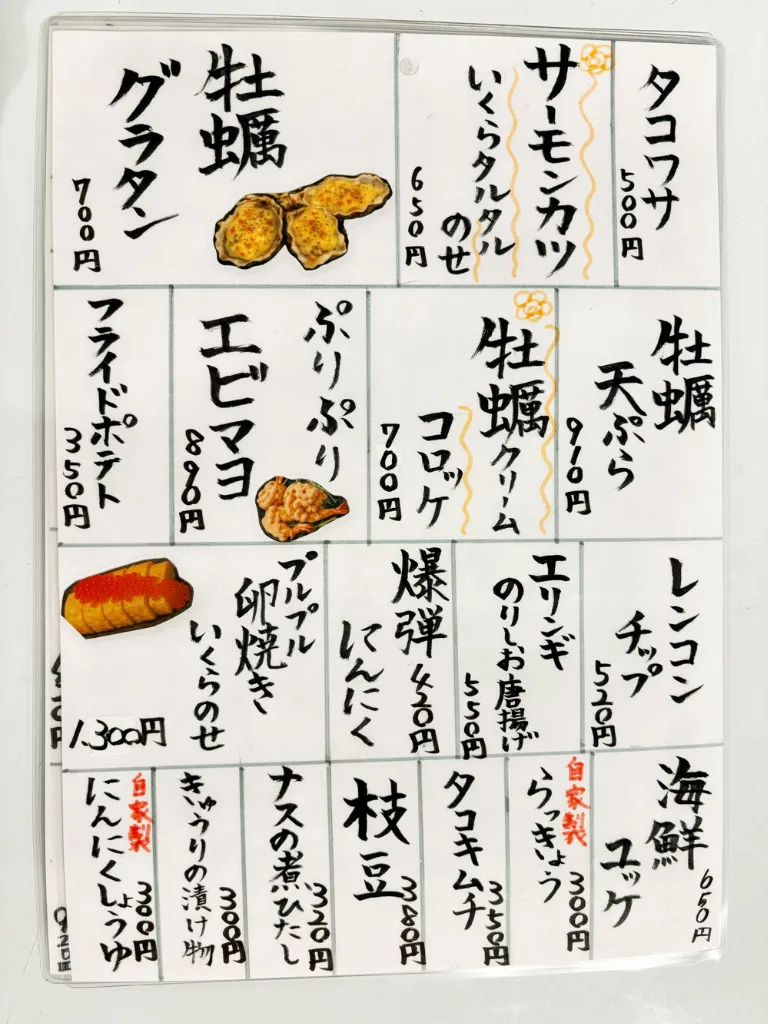 タコワサ
500円
サーモンカツ
いくらタルタル
のせ
650円
牡蠣
グラタン
700円
牡蠣
天ぷら
910円
牡蠣クリーム
コロッケ
700円
ぷりぷり
エビマヨ
890円
フライドポテト
350円
レンコン
チップ
520円
エリンギ
のりしお唐揚げ
550円
爆弾
にんにく
420円
プルプル
卵焼き
いくらのせ
1.300円
海鮮
ユッケ
650円
自家製
らっきょう
300円
タコキムチ
350円
枝豆
380円
ナスの煮ひたし
320円
きゅうりの漬け物
300円
自家製
にんにくしょうゆ
300円